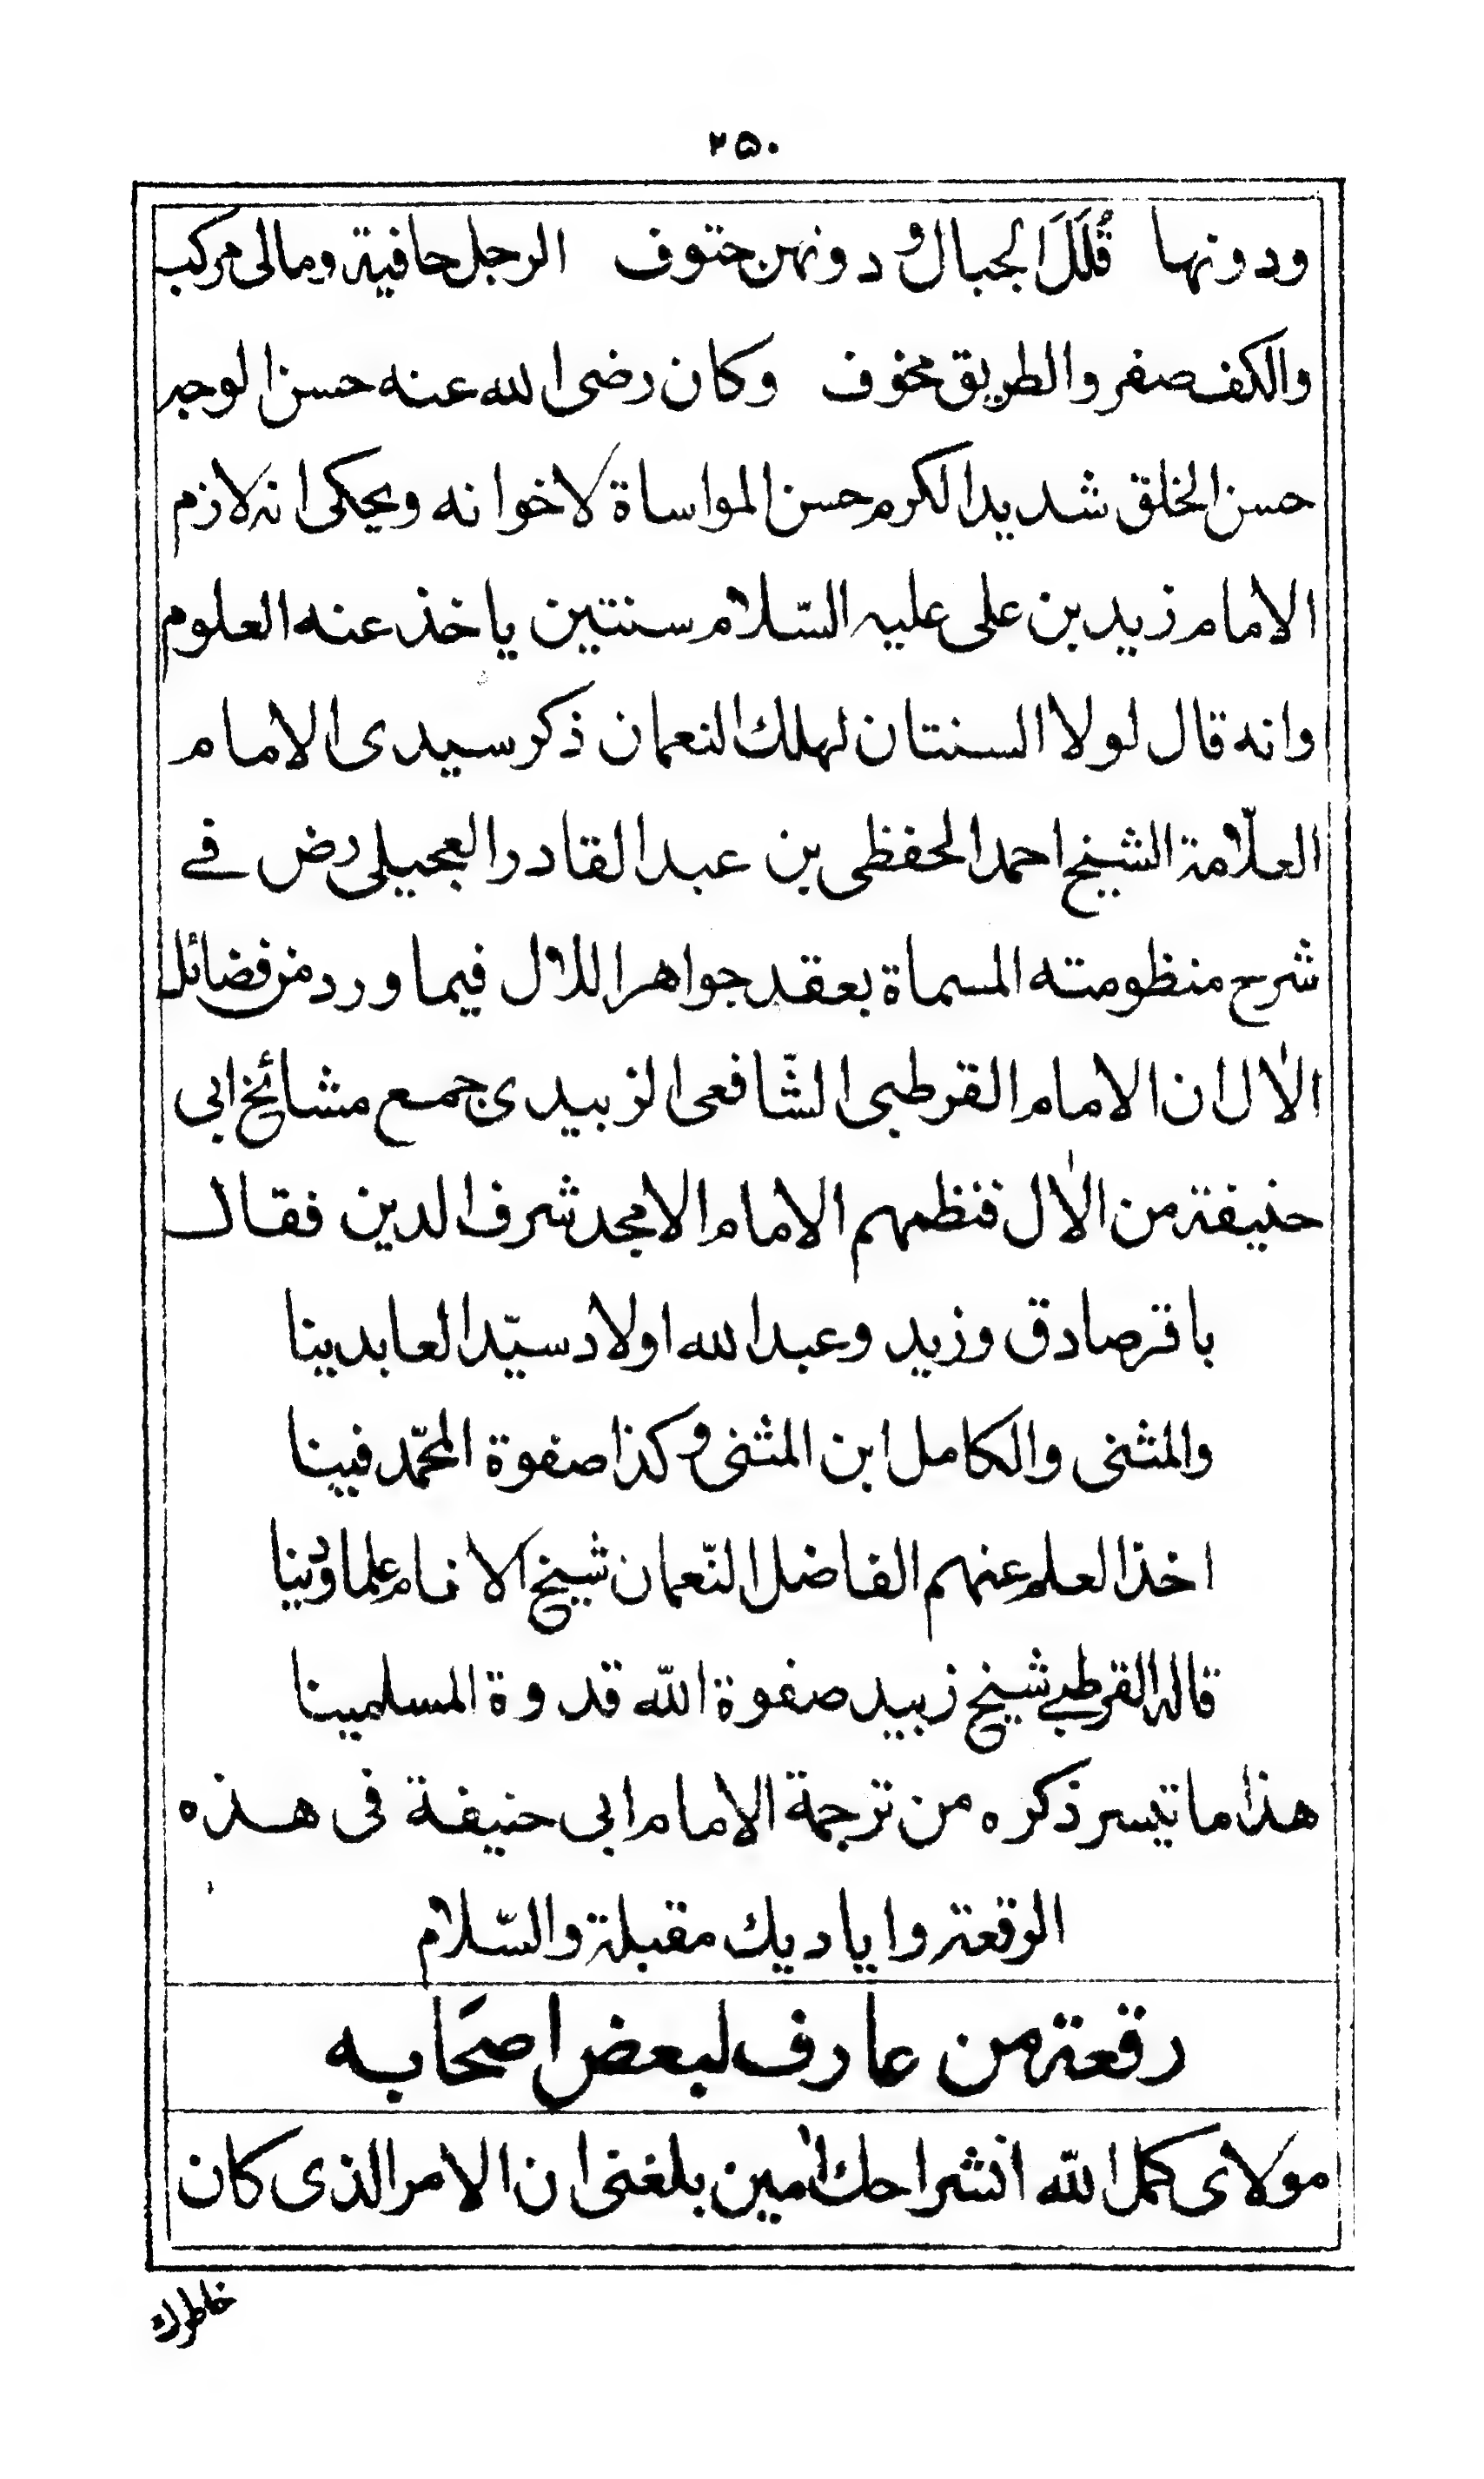 ٢٥٠
ودونها قُلَلَ الجبال ودونهن حتوف الرجل حافية ومالى مركب
والكف صفر والطريق مخوف وكان رضى الله عنه حسن الوجه
حسن الخلق شديد الكرم حسن المواساة لاخوانه ويحكى انه لازم
الامام زيد بن على عليه السّلام سنتين ياخذ عنه العلوم
وانه قال لولا السنتان لهلك النعمان ذكر سيدى الامام
العلّامة الشيخ احمد الحفظى بن عبد القادر العجيلى رض فے
شرح منظومته المسماة بعقد جواهر اللال فيما ورد من فضائل
الاٰل ان الامام القرطبى الشّافعى الزبيدى جمع مشائخ ابى
حنيفة من الاٰل فنظمهم الامام الامجد شرف الدين فقال
باقر صادق وزيد وعبد الله اولاد سيّد العابدينا
والمثنى والكامل ابن المثنى وكذا صفوة المحمّد فينا
اخذ العلم عنهم الفاضل النّعمان شيخ الانام علما ودينا
قاله القرطبے شيخ زبيد صفوة الله قدوة المسلمينا
هذا ما تيسر ذكره من ترجمة الامام ابى حنيفة فى هذه
الرقعة واياديك مقبلة والسّلام
رقعة من عارف لبعض اصحَابه
مولاى كمل الله انشراحك اٰمين بلغنى ان الامر الذى كان
خاطرك